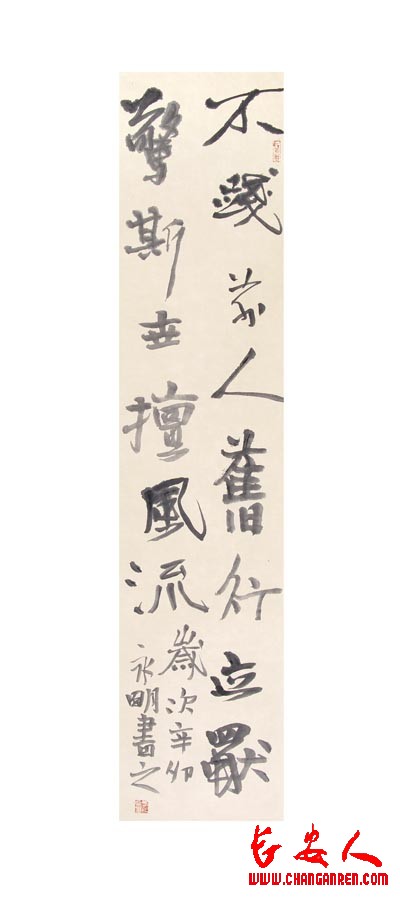 不踐前人舊行迹獨
驚斯世擅風流
歲次辛卯
永明書之
长安人
WWW.CHANGANREN.COM